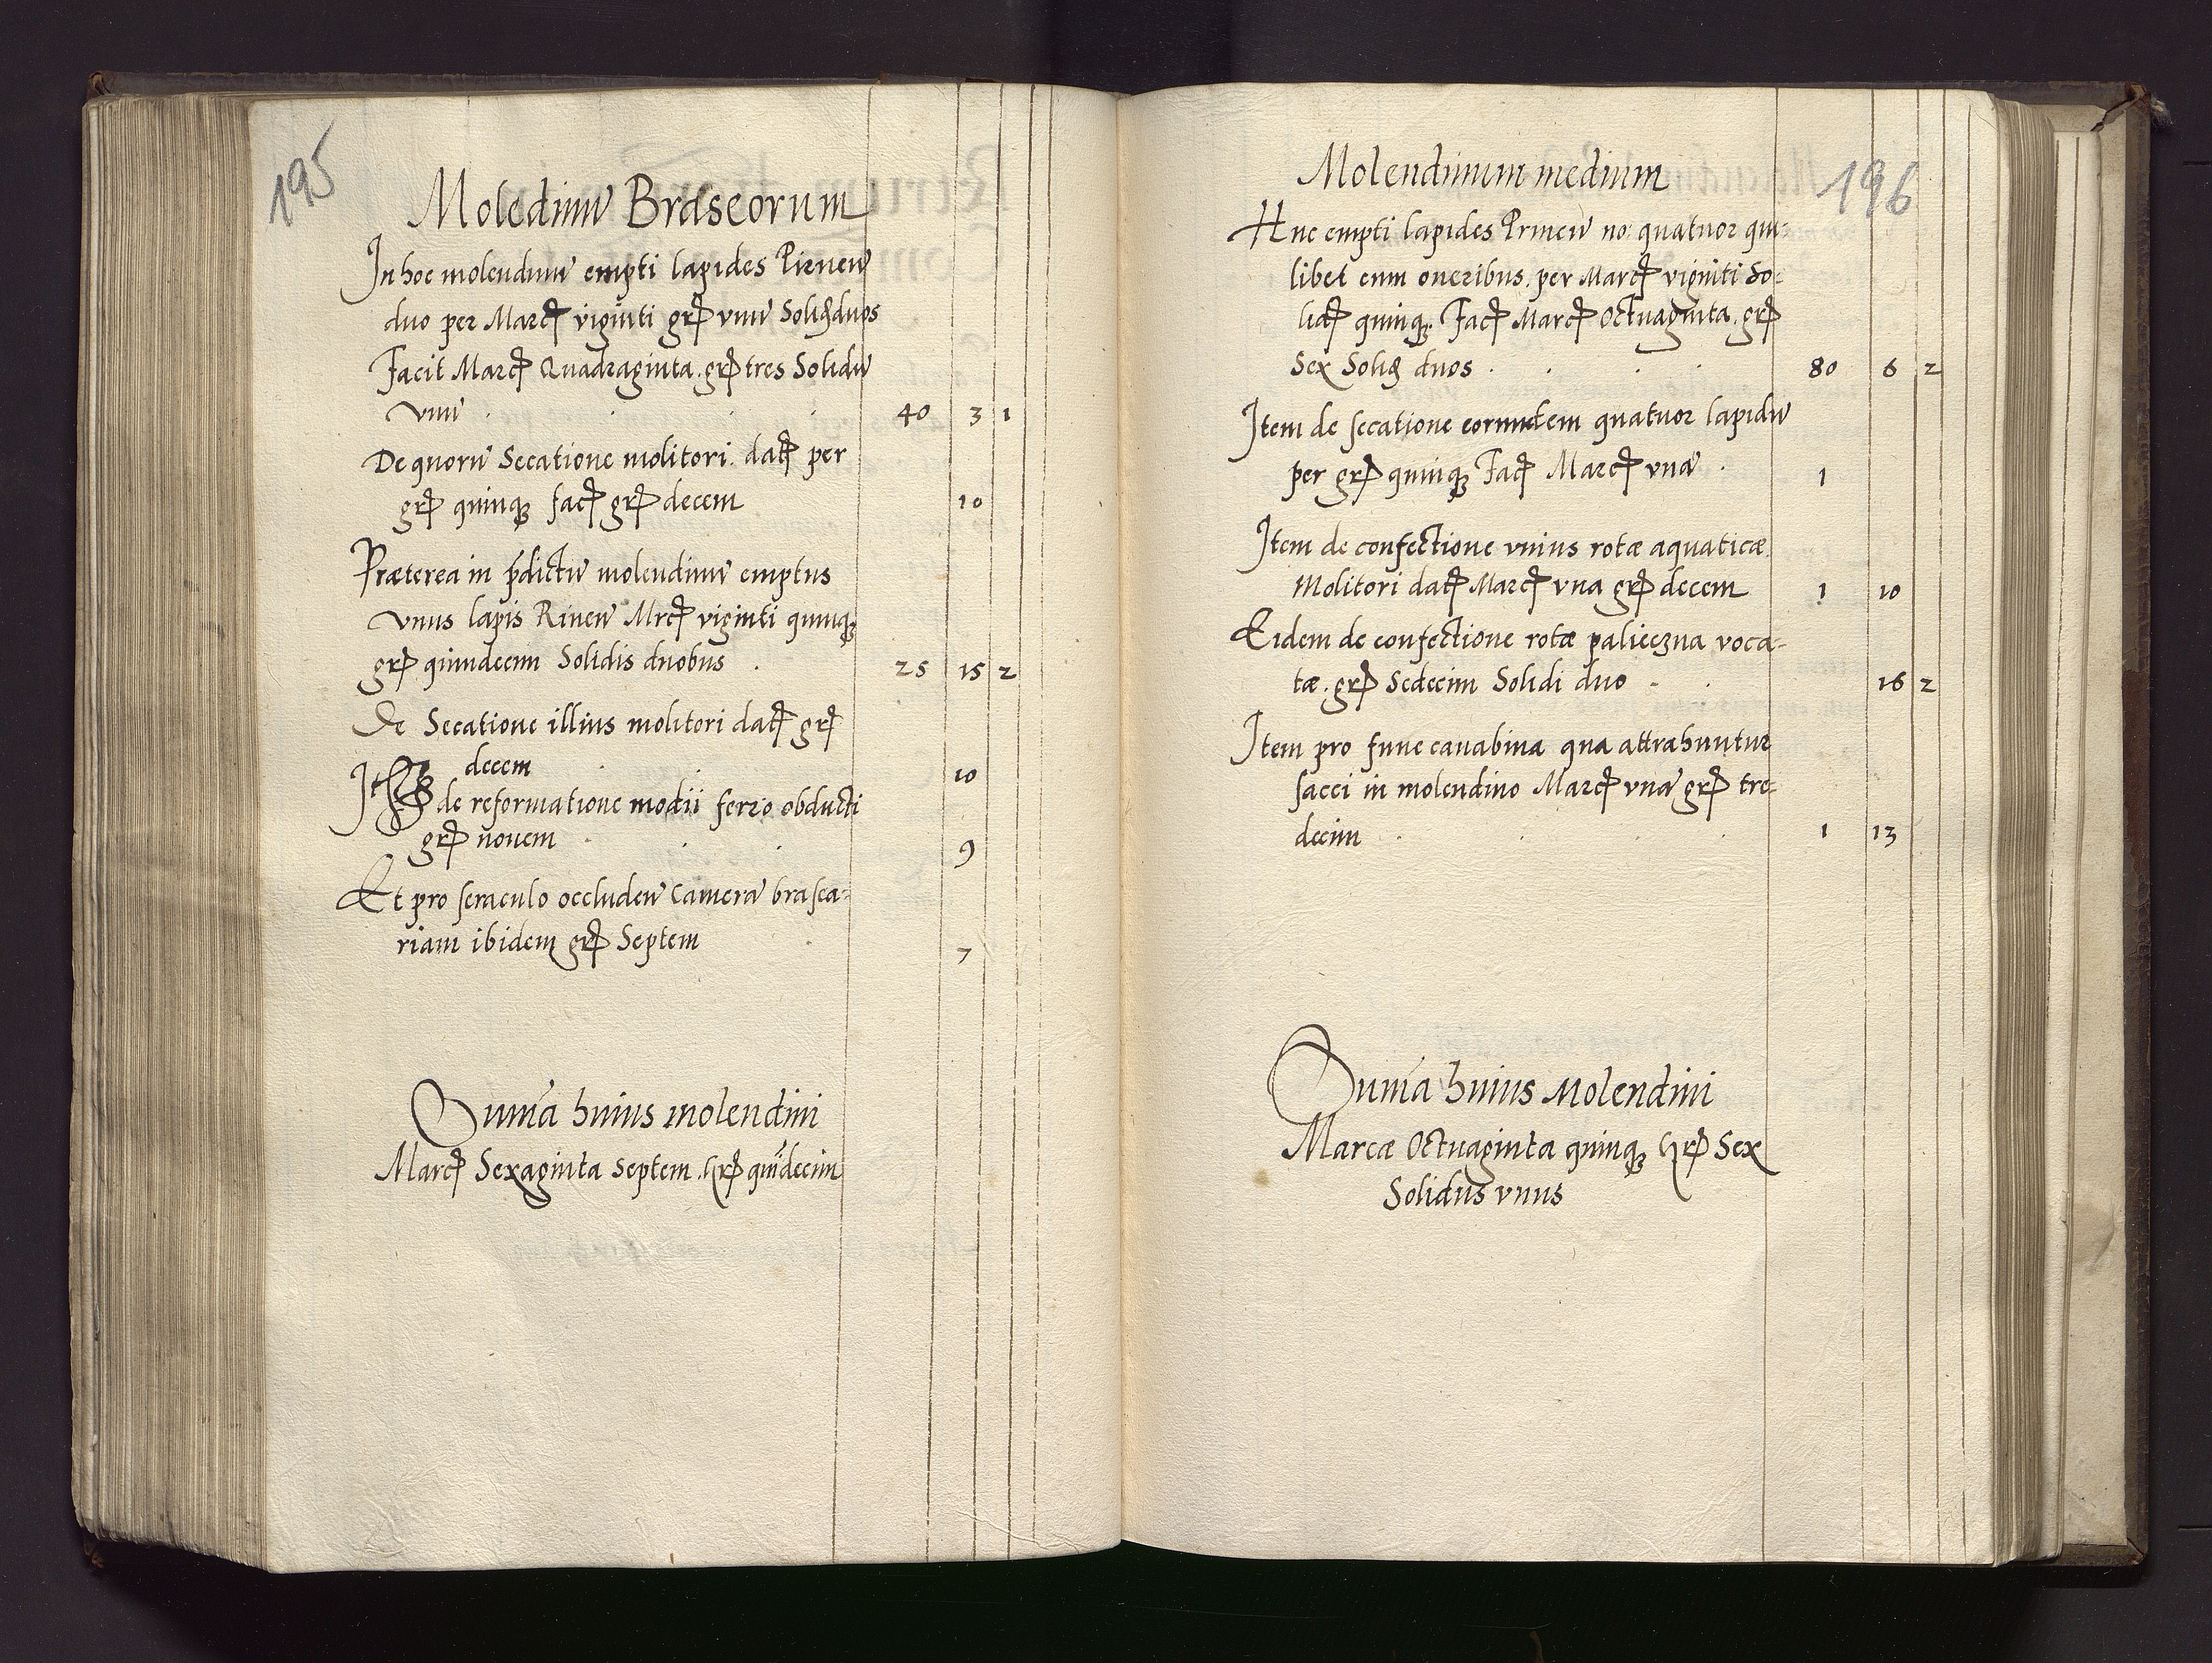 195
Moledinū Braseorum
In hoc molendinū empti lapides Pirnen̄
duo per Marcꝭ viginti grꝭ vnū Solid duos
Facit Marcꝭ Quadraginta. grꝭ tres Solidū
vnū . . . . 40 3 1
De quorū Secatione molitori. datꝭ per
grꝭ quinqꝫ facꝭ grꝭ decem 10
Præterea in p̄dictū molendinū emptus
vnus lapis Pirnen̄ Mrcꝭ viginti quinqꝫ
grꝭ quindecim Solidis duobus . 25 15 2
De Secatione illius molitori datꝭ grꝭ
decem . . 10
It de reformatione modii ferro obducti
grꝭ nouem . . . 9
Et pro seraculo occluden̄ Camerā brasea-
riam ibidem grꝭ Septem . 7
Sum̄a huius molendini
Marcꝭ Sexaginta septem. grꝭ quīdecim
196
Molendinum medium
Huc empti lapides Pirnen̄ no: quatuor qui-
libet cum oneribus. per Marcꝭ viginti So-
lidꝭ quinqꝫ. Facꝭ Marcꝭ Octuaginta. grꝭ
Sex Solid duos . . . . 80 6 2
Item de secatione eorundem quatuor lapidū
per grꝭ quinqꝫ Facꝭ Marcꝭ vnā . 1
Item de confectione vnius rotæ aquaticæ.
Molitori datꝭ Marcꝭ vna grꝭ decem 1 10
Eidem de confectione rotæ palieczna voca-
tæ. grꝭ Sedecim Solidi duo - . 16 2
Item pro fune canabina qua attrahuntur
sacci in molendino Marcꝭ vnā grꝭ tre-
decim . . . . 1 13
Sum̄a huius Molendini
Marcæ Octuaginta quinqꝫ grꝭ Sex
Solidus vnus